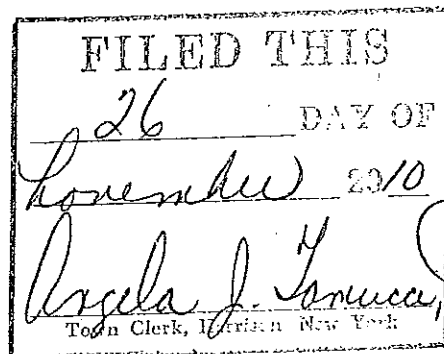 FILED THIS
26 DAY OF
November 2010
Angela J.
Town Clerk, Harrison New York